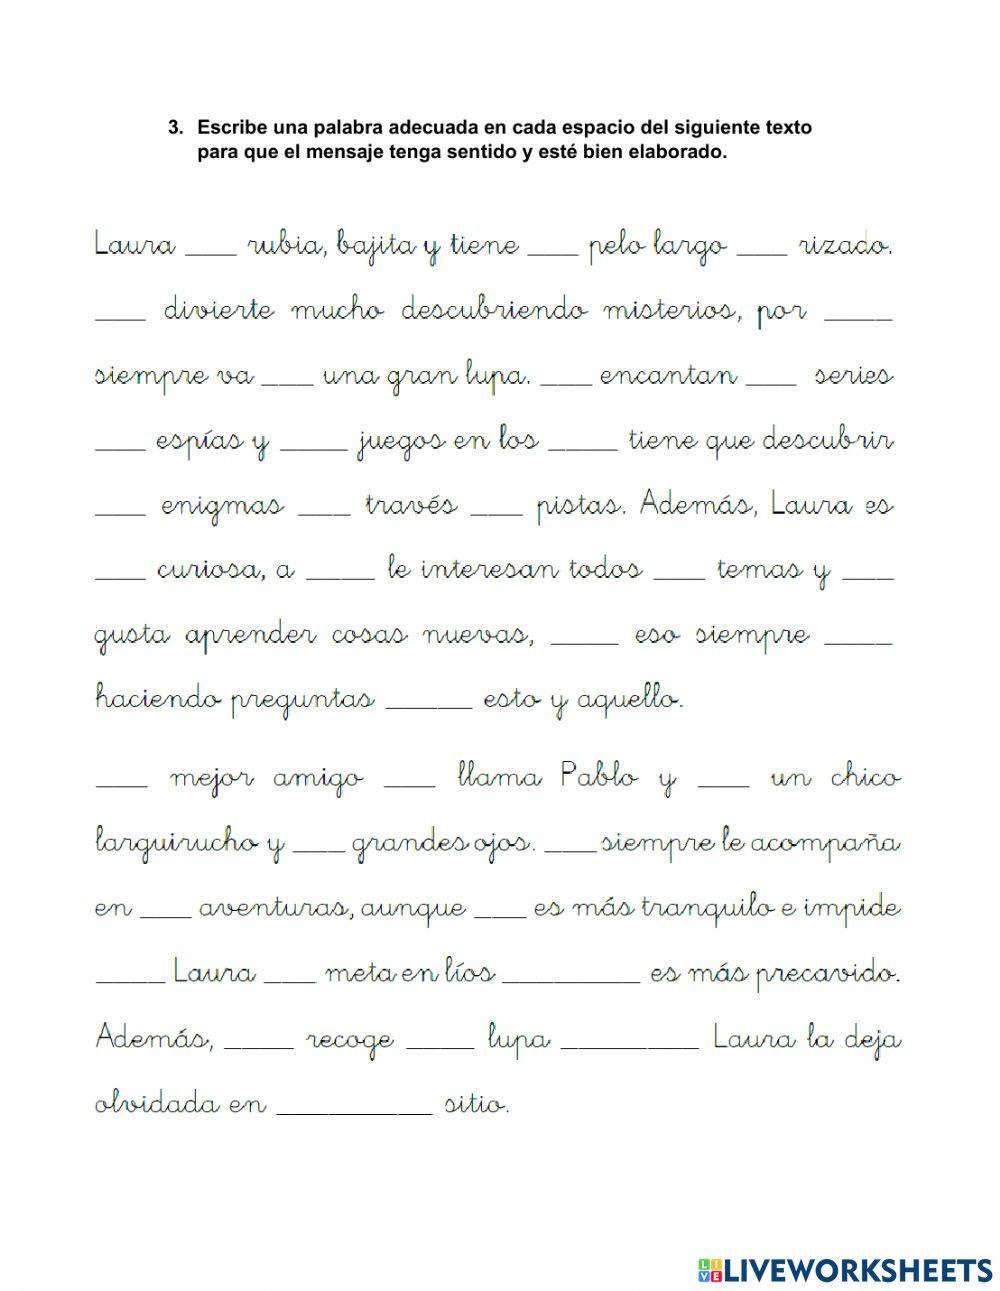 3. Escribe una palabra adecuada en cada espacio del siguiente texto
para que el mensaje tenga sentido y esté bien elaborado.
Laura ___ rubia, bajita y tiene ___ pelo largo ___ rizado.
___ divierte mucho descubriendo misterios, por ____
siempre va ___ una gran lupa. ___ encantan ___ series
___ espías y ____ juegos en los ____ tiene que descubrir
___ enigmas ___ través ___ pistas. Además, Laura es
___ curiosa, a ____ le interesan todos ___ temas y ___
gusta aprender cosas nuevas, ____ eso siempre ____
haciendo preguntas _____ esto y aquello.
___ mejor amigo ___ llama Pablo y ___ un chico
larguirucho y ___ grandes ojos. ___ siempre le acompaña
en ___ aventuras, aunque ___ es más tranquilo e impide
____ Laura ___ meta en líos ________ es más precavido.
Además, ____ recoge ____ lupa ________ Laura la deja
olvidada en _________ sitio.
LIVE LIVEWORKSHEETS